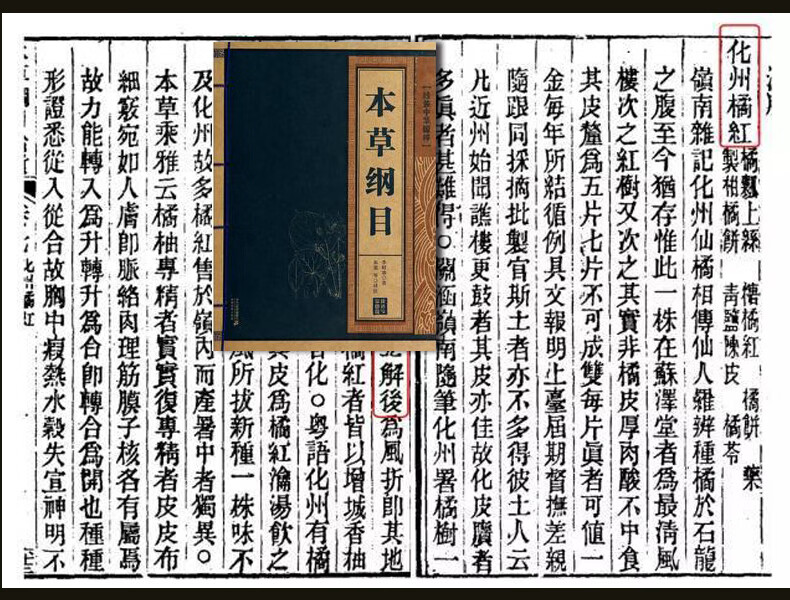 化州橘紅
橘瓤上絲
橘紅
橘餅
藥
製柑橘餅
青鹽陳皮
橘苓
嶺南雜記化州仙橘相傳仙人羅辨種橘於石龍
之腹至今猶存惟此一株在蘇澤堂者為最清風
樓次之紅樹又次之其實非橘皮厚肉酸不中食
其皮釐為五片七片不可成雙每片真者可值一
金每年所結循例具文報明上臺屆期督撫差親
隨跟同採摘批製官斯土者亦不多得彼土人云
凡近州始聞譙樓更鼓者其皮亦佳故化皮贋者
多真者甚難得○關涵嶺南隨筆化州署橘樹一
解後為風折即其地
橘紅者皆以增城香柚
化○粵語化州有橘
皮為橘紅瀹湯飲之
風所拔新種一株味不
及化州故多橘紅售於嶺內而產署中者獨異○
本草乘雅云橘柚專精者實實復專精者皮皮布
細竅宛如人膚即脈絡肉理筋膜子核各有屬焉
故力能轉入為升轉升為合即轉合為開也種種
形證悉從入從合故胸中痰熱水穀失宣神明不
橘紅
本草纲目